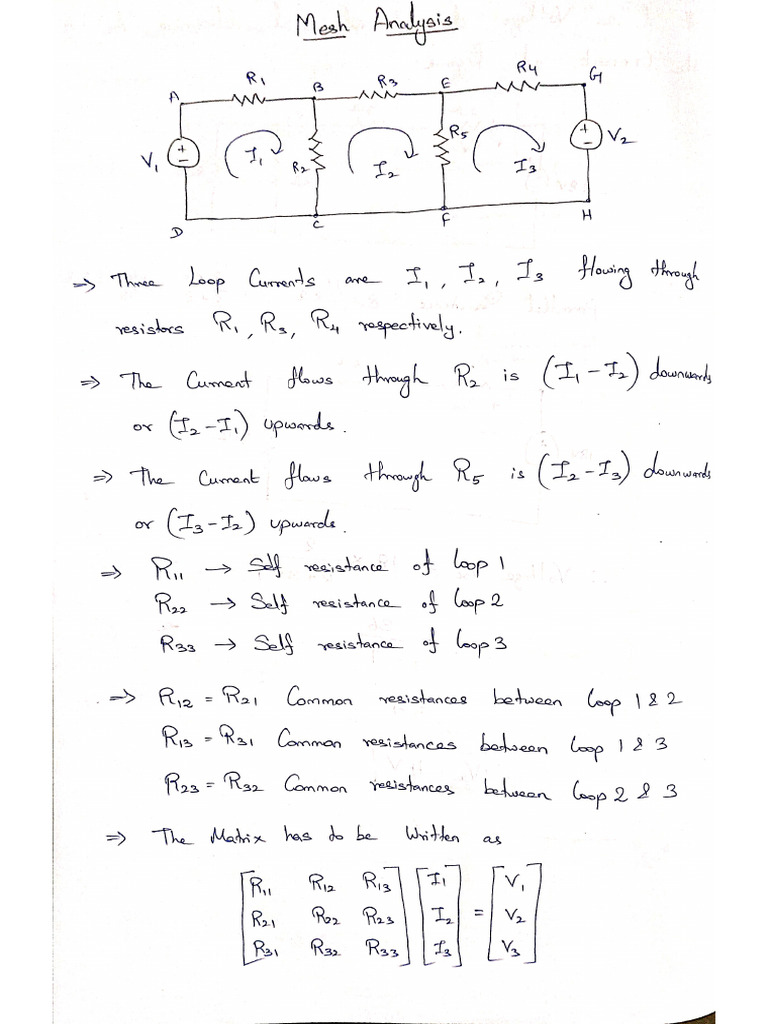 Mesh Analysis
R₁ R₃ R₄
A B E G
V₁ + − I₁ R₂ I₂ R₅ I₃ + − V₂
D C F H
⇒ Three Loop Currents are I₁, I₂, I₃ flowing through
resistors R₁, R₃, R₄ respectively.
⇒ The Current flows through R₂ is (I₁ − I₂) downwards
or (I₂ − I₁) upwards.
⇒ The Current flows through R₅ is (I₂ − I₃) downwards
or (I₃ − I₂) upwards.
⇒ R₁₁ → Self resistance of Loop 1
R₂₂ → Self resistance of Loop 2
R₃₃ → Self resistance of Loop 3
⇒ R₁₂ = R₂₁ Common resistances between Loop 1 & 2
R₁₃ = R₃₁ Common resistances between Loop 1 & 3
R₂₃ = R₃₂ Common resistances between Loop 2 & 3
⇒ The Matrix has to be Written as
[R₁₁ R₁₂ R₁₃] [I₁] [V₁]
[R₂₁ R₂₂ R₂₃] [I₂] = [V₂]
[R₃₁ R₃₂ R₃₃] [I₃] [V₃]